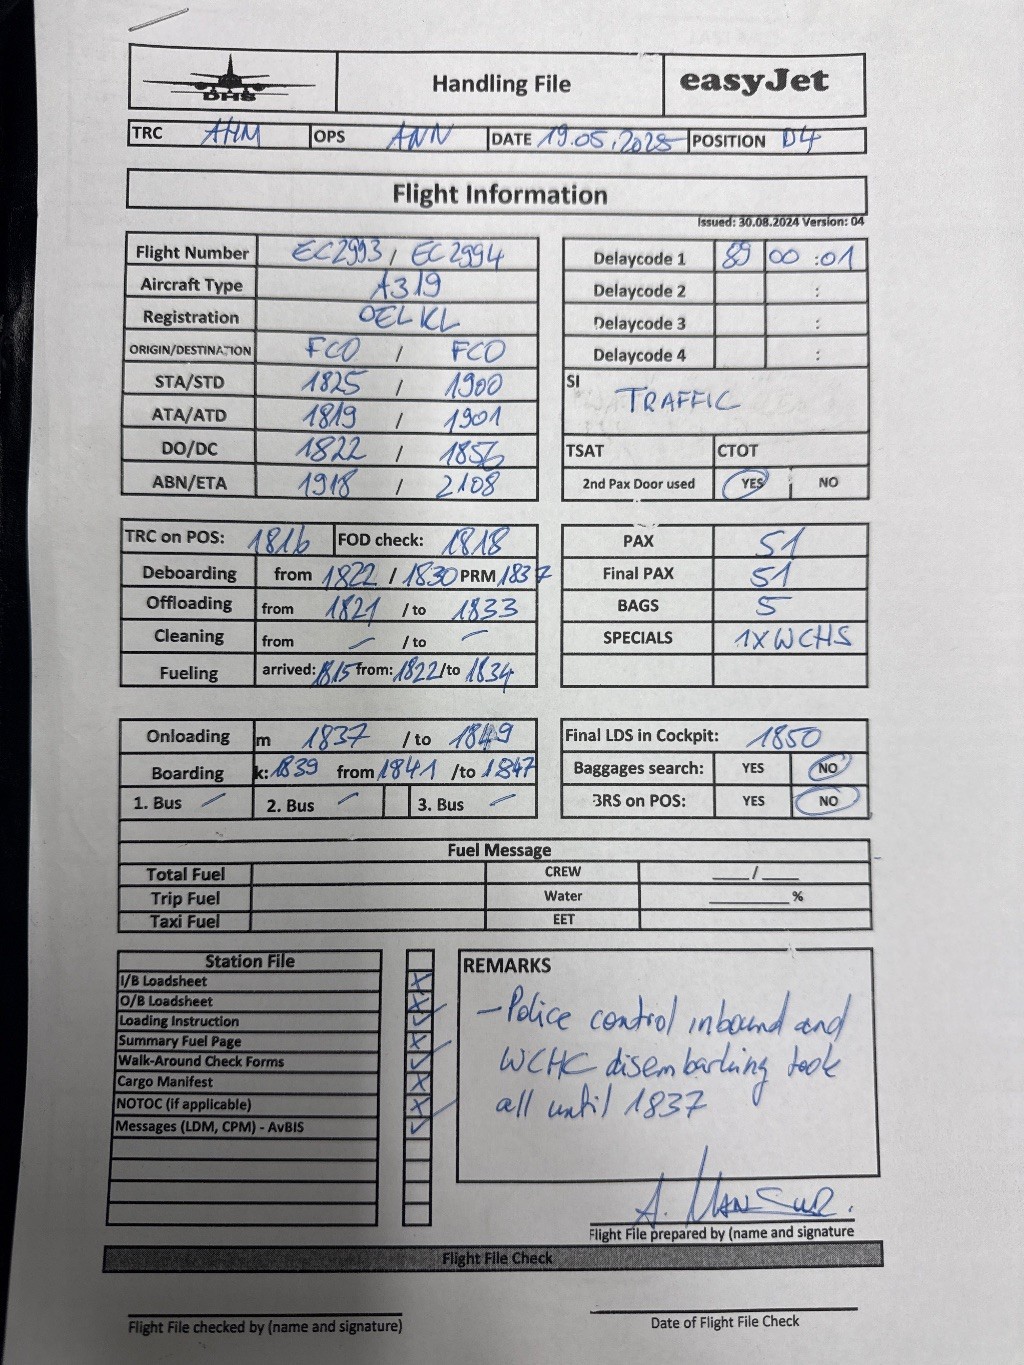 DHS
Handling File
easyJet
TRC AHM OPS ANN DATE 19.05.2025 POSITION D4
Flight Information
Issued: 30.08.2024 Version: 04
Flight Number EC2993 / EC2994
Aircraft Type A319
Registration OELKL
ORIGIN/DESTINATION FCO / FCO
STA/STD 1825 / 1900
ATA/ATD 1819 / 1901
DO/DC 1822 / 1856
ABN/ETA 1918 / 2108
Delaycode 1 89 00 :01
Delaycode 2 :
Delaycode 3 :
Delaycode 4 :
SI
TRAFFIC
TSAT CTOT
2nd Pax Door used YES NO
TRC on POS: 1816 FOD check: 1818
Deboarding from 1822 / 1830 PRM 1837
Offloading from 1821 / to 1833
Cleaning from – / to –
Fueling arrived: 1815 from: 1822/to 1834
PAX 51
Final PAX 51
BAGS 5
SPECIALS 1X WCHS
Onloading m 1837 / to 1849
Boarding k: 1839 from 1841 /to 1847
1. Bus – 2. Bus – 3. Bus –
Final LDS in Cockpit: 1850
Baggages search: YES NO
BRS on POS: YES NO
Fuel Message
Total Fuel CREW ___/___
Trip Fuel Water ________%
Taxi Fuel EET
Station File
I/B Loadsheet X
O/B Loadsheet X
Loading Instruction ✓
Summary Fuel Page X
Walk-Around Check Forms ✓
Cargo Manifest X
NOTOC (if applicable) X
Messages (LDM, CPM) - AvBIS ✓
REMARKS
- Police control inbound and
WCHC disembarking took
all until 1837
A. MANSUR.
Flight File prepared by (name and signature
Flight File Check
Flight File checked by (name and signature)
Date of Flight File Check